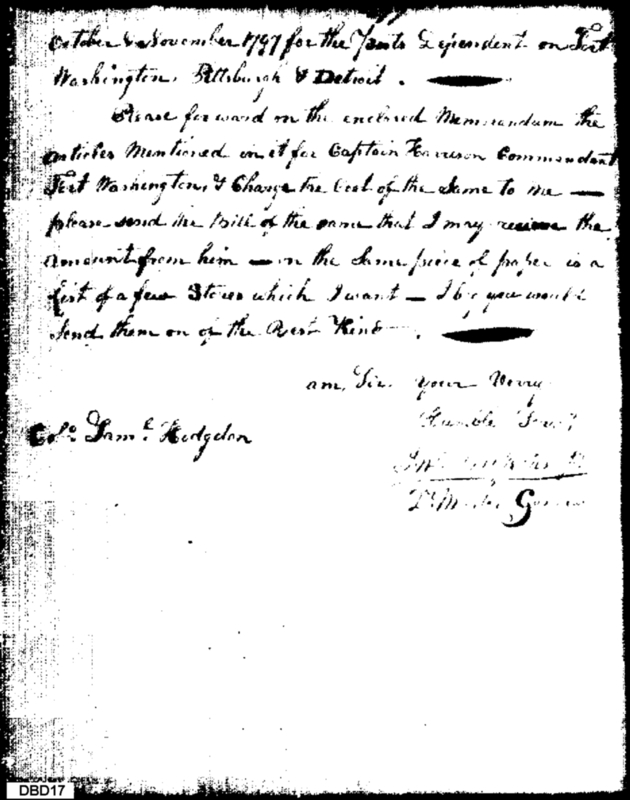 October & November 1797 for the Posts Dependent on Fort
Washington, Pittsburgh & Detroit.
Please forward on the enclosed Memorandum the
articles Mentioned in it for Captain Harrison Commandant
Fort Washington, & Charge the Cost of the Same to me —
please send the Bill of the same that I may recieve the
amount from him — on the Same piece of paper is a
list of a few Stores which I want — I beg you would
Send them on of the Best Kind — .
am, Sir, your Verry
Humble Servt
Colo. Saml. Hodgdon
DBD17